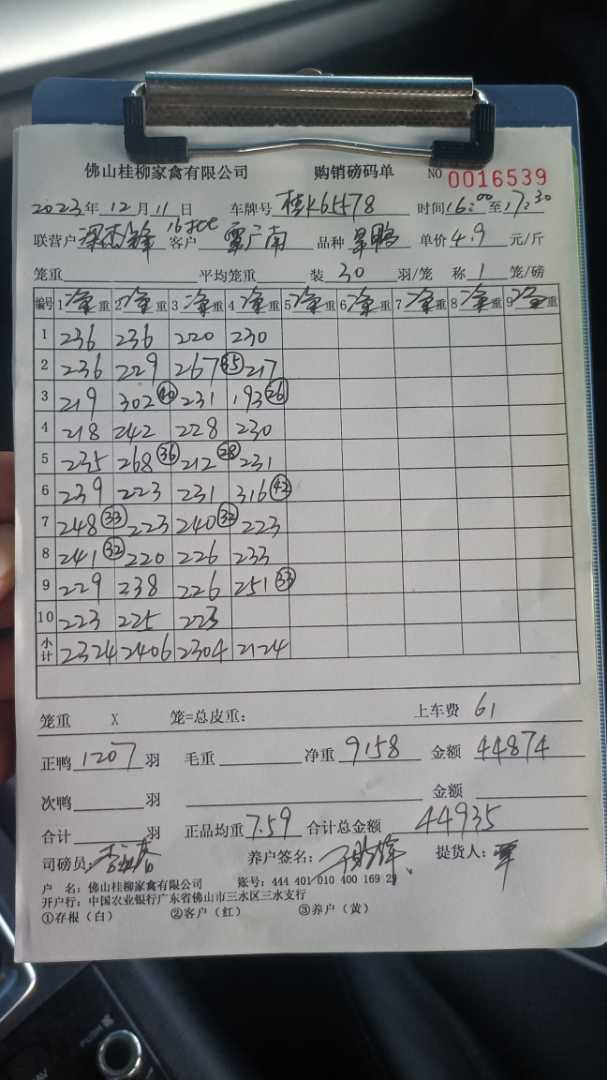 佛山桂柳家禽有限公司 购销磅码单 NO 0016539
2023年12月11日 车牌号 桂K65578 时间16:00至17:30
联营户 客户 覃广南 品种 单价4.9元/斤
笼重 平均笼重 装30羽/笼 称1笼/磅
编号 1净重 2净重 3净重 4净重 5净重 6净重 7净重 8净重 9净重
1 236 236 220 230
2 236 229 267(35) 217
3 219 302(40) 231 193(26)
4 218 242 228 230
5 235 268(36) 212(28) 231
6 239 223 231 316(42)
7 248(33) 223 240(32) 223
8 241(32) 220 226 233
9 229 238 226 251(33)
10 223 225 223
小计 2324 2406 2304 2124
笼重 X 笼=总皮重: 上车费 61
正鸭1207羽 毛重 净重9158 金额44874
次鸭 羽 金额
合计 羽 正品均重7.59 合计总金额 44935
司磅员: 养户签名: 提货人:覃
户 名:佛山桂柳家禽有限公司 账号:444 401 010 400 169 29
开户行:中国农业银行广东省佛山市三水区三水支行
①存根(白) ②客户(红) ③养户(黄)
PUSH
AV